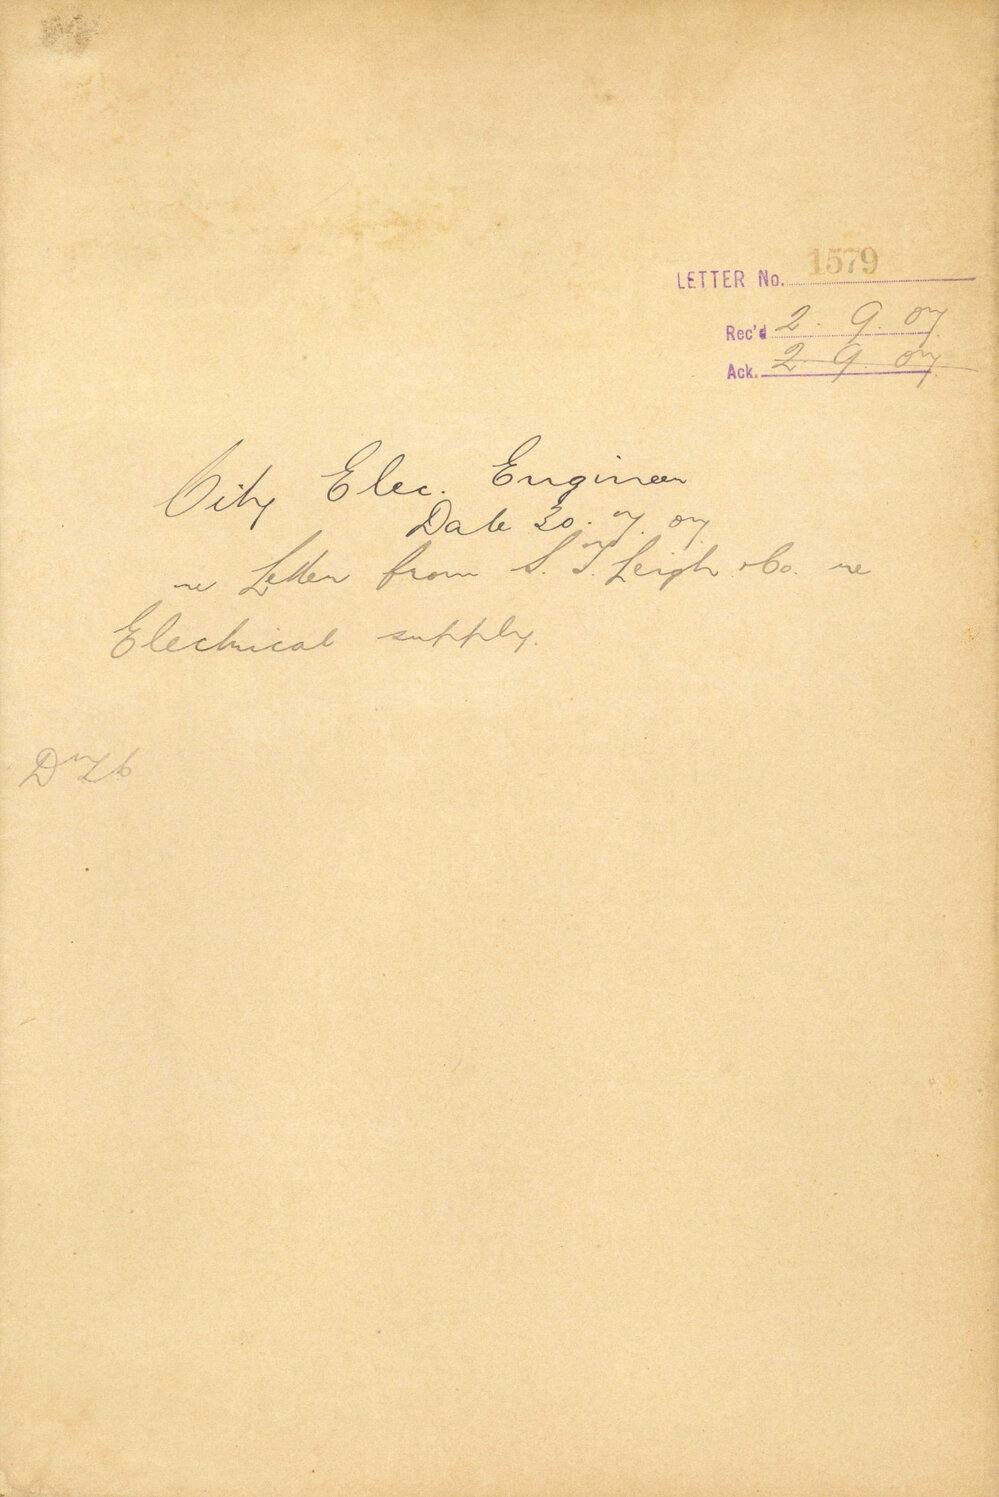 LETTER No. 1579
Rec'd 2. 9. 07
Ack. 2 9. 07
City Elec. Engineer
Date 30. 7. 07
re Letter from S. T. Leigh & Co. re
Electrical supply.